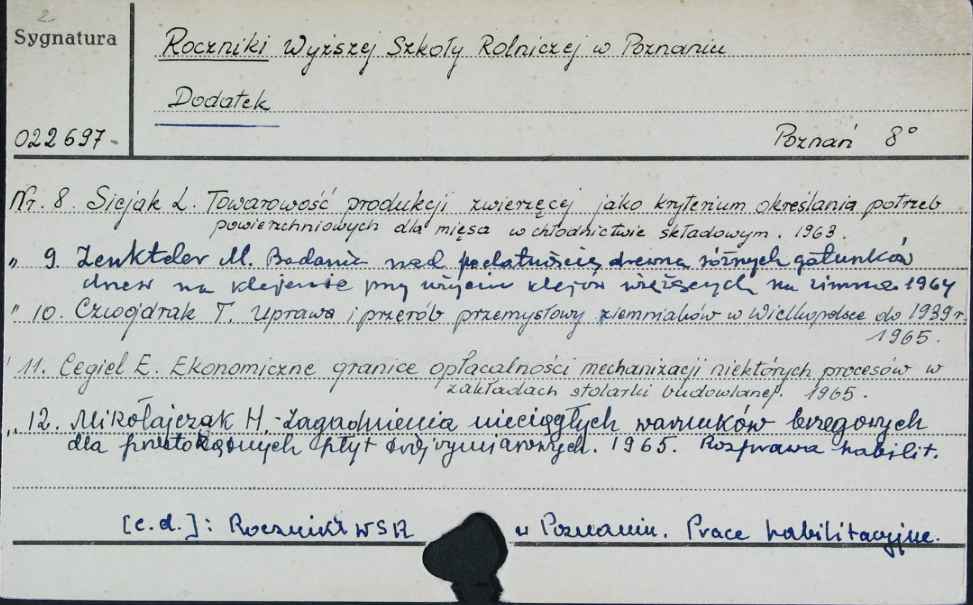 2
Sygnatura
Roczniki Wyższej Szkoły Rolniczej w Poznaniu
Dodatek
022697-
Poznań 8°
Nr. 8. Siejak L. Towarowość produkcji zwierzęcej jako kryterium określania potrzeb
powierzchniowych dla mięsa w chłodnictwie składowym. 1963.
" 9. Zenkteler M. Badania nad podatnością drewna różnych gatunków
drzew na klejenie przy użyciu klejów wiążących na zimno 1964
" 10. Czwojdrak T. Uprawa i przerób przemysłowy ziemniaków w Wielkopolsce do 1939 r.
1965.
" 11. Cegieł E. Ekonomiczne granice opłacalności mechanizacji niektórych procesów w
zakładach stolarki budowlanej. 1965.
" 12. Mikołajczak H. - Zagadnienia nieciągłych warunków brzegowych
dla prostokątnych płyt trójwymiarowych. 1965. Rozprawa habilit.
[c.d.]: Roczniki WSR w Poznaniu. Prace habilitacyjne.